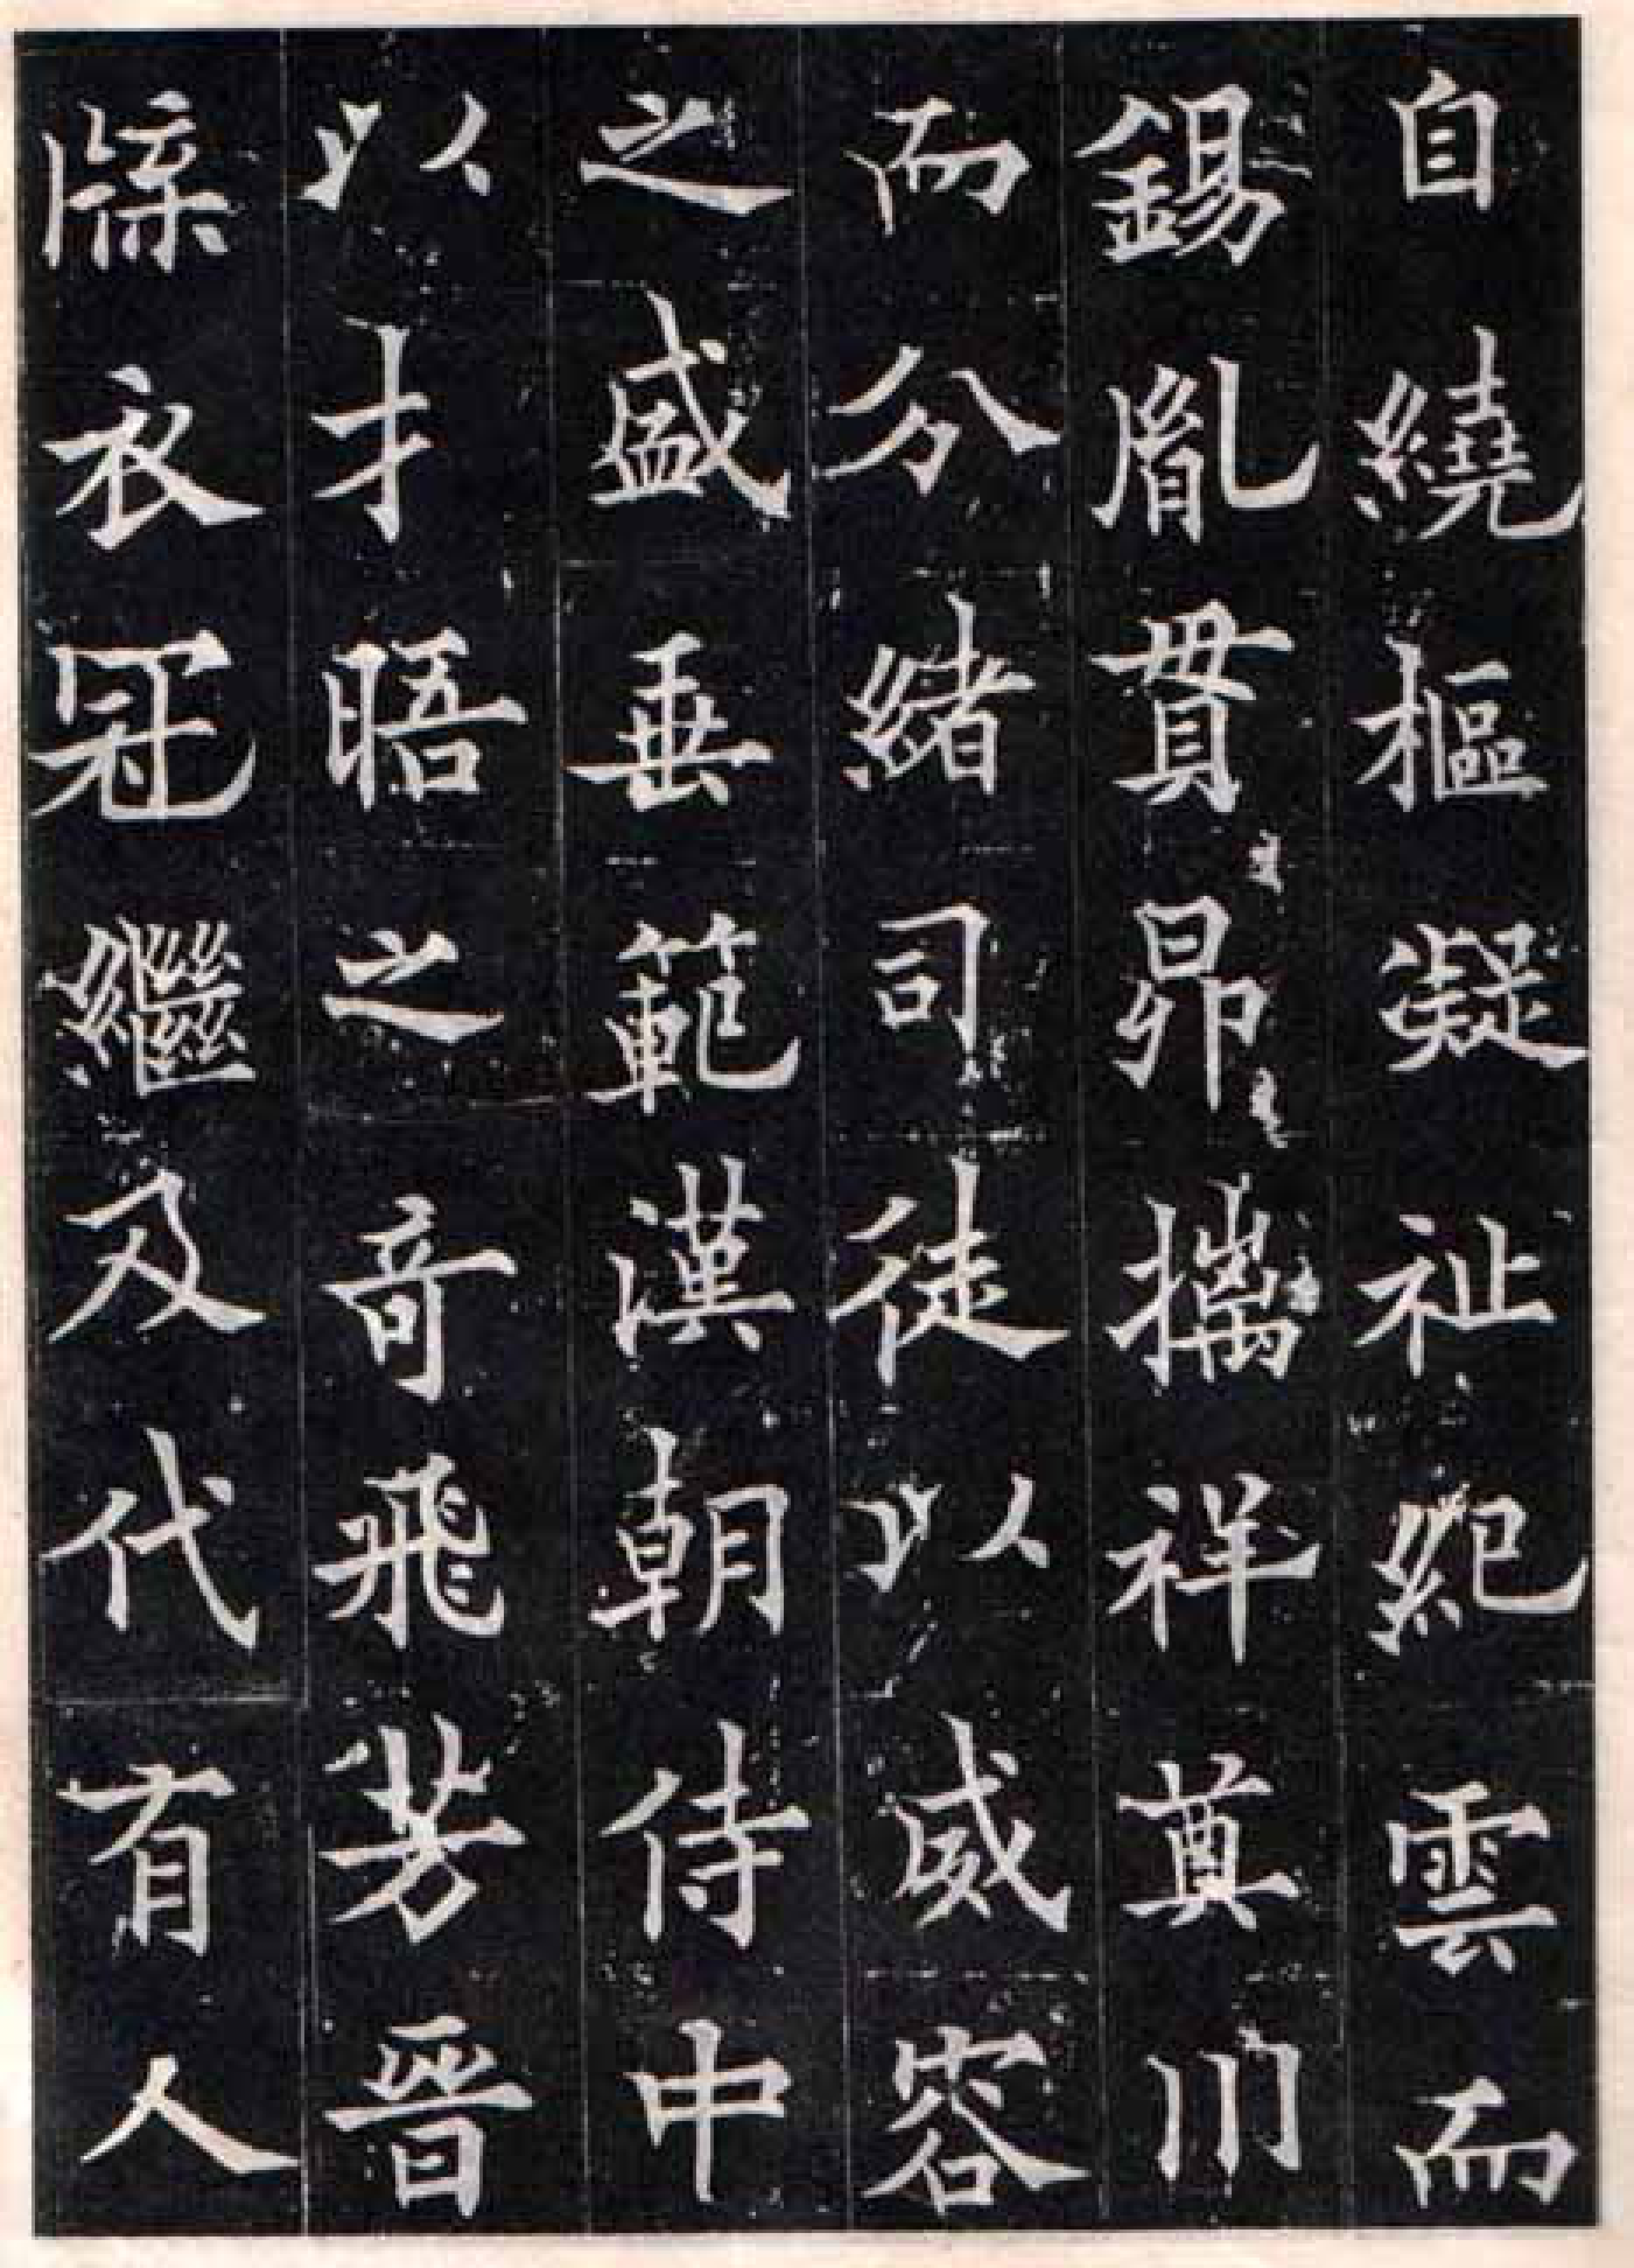 自繞樞凝祉紀雲而
錫胤貫昴摛祥奠川
而分緒司徒以威容
之盛垂範漢朝侍中
以才晤之奇飛芳晉
牒衣冠繼及代有人